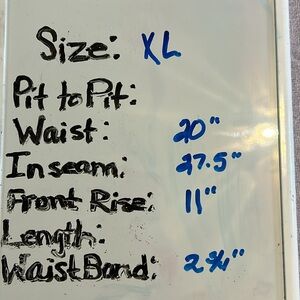 Size: XL
Pit to Pit:
Waist: 20"
Inseam: 27.5"
Front Rise: 11"
Length:
WaistBand: 2 3/4"